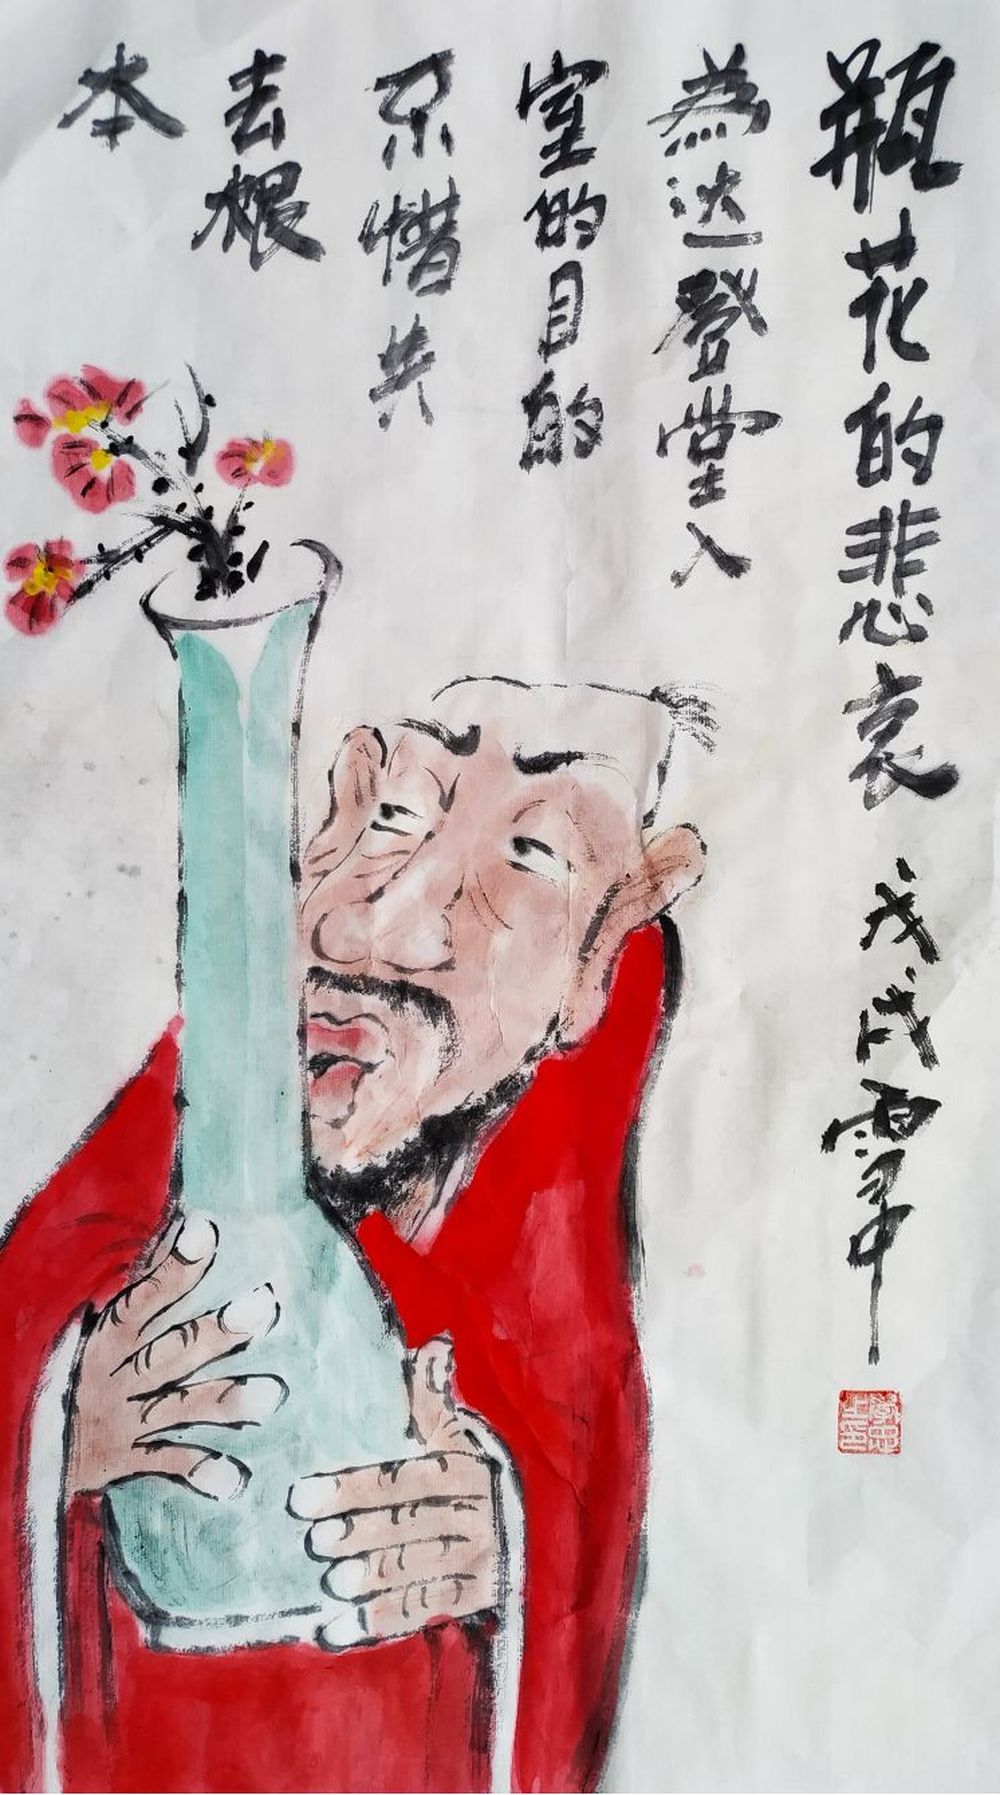 瓶花的悲哀 戊戌
為达登堂入
室的目的
不惜失
去根
本